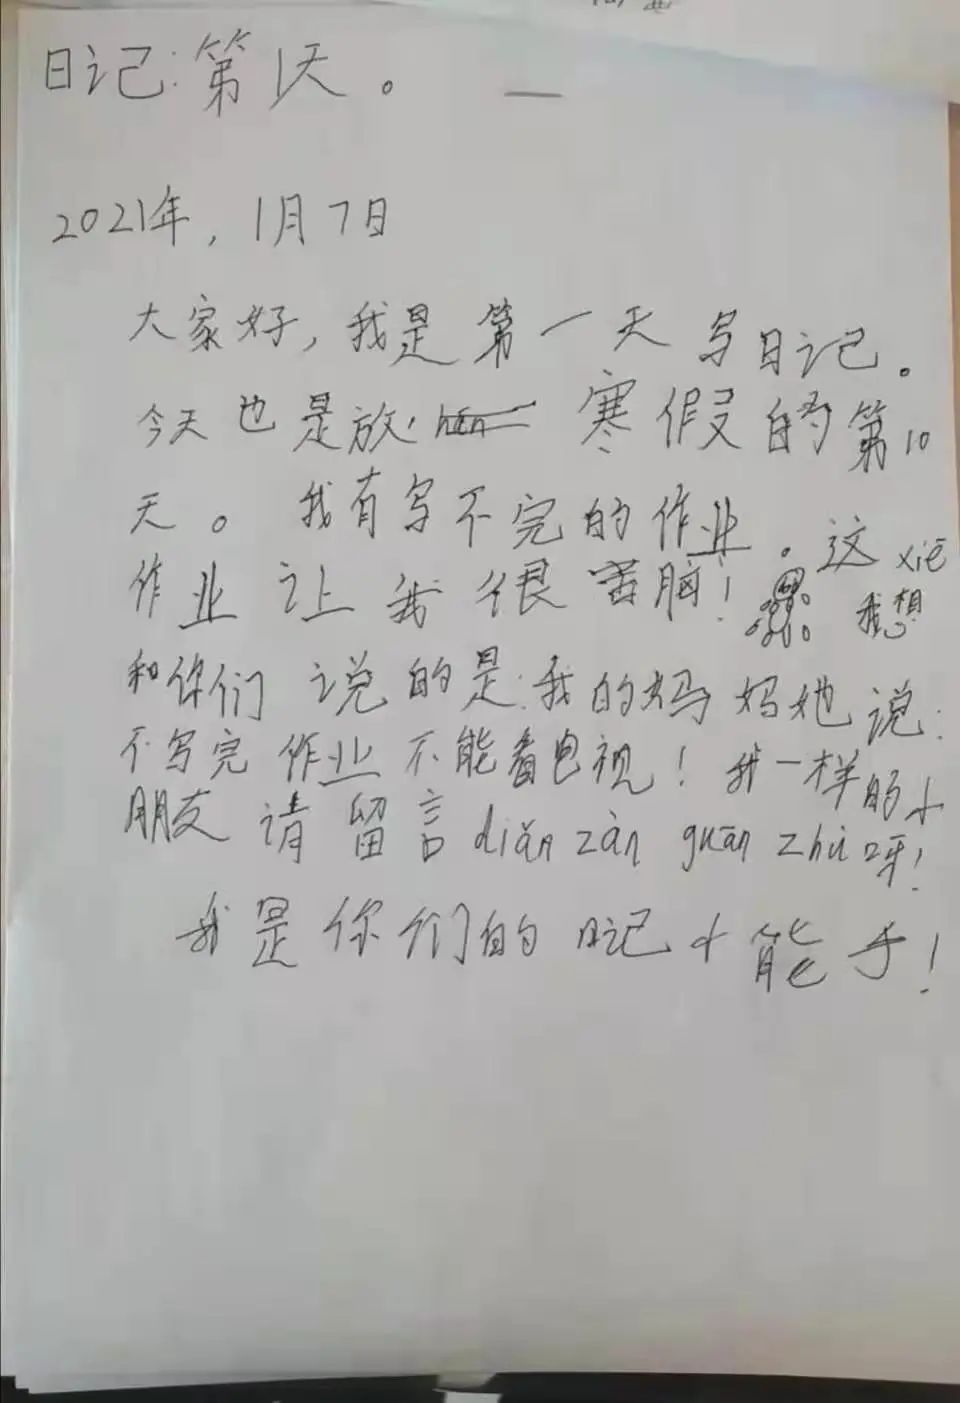 日记:第1天。
2021年,1月7日
大家好,我是第一天写日记。
今天也是放 寒假的第10
天。我有写不完的作业。这xiē
作业让我很苦脑! 我想
和你们说的是:我的妈妈她说:
不写完作业不能看电视!我一样的小
朋友请留言diǎn zàn guān zhù呀!
我是你们的日记小能手!